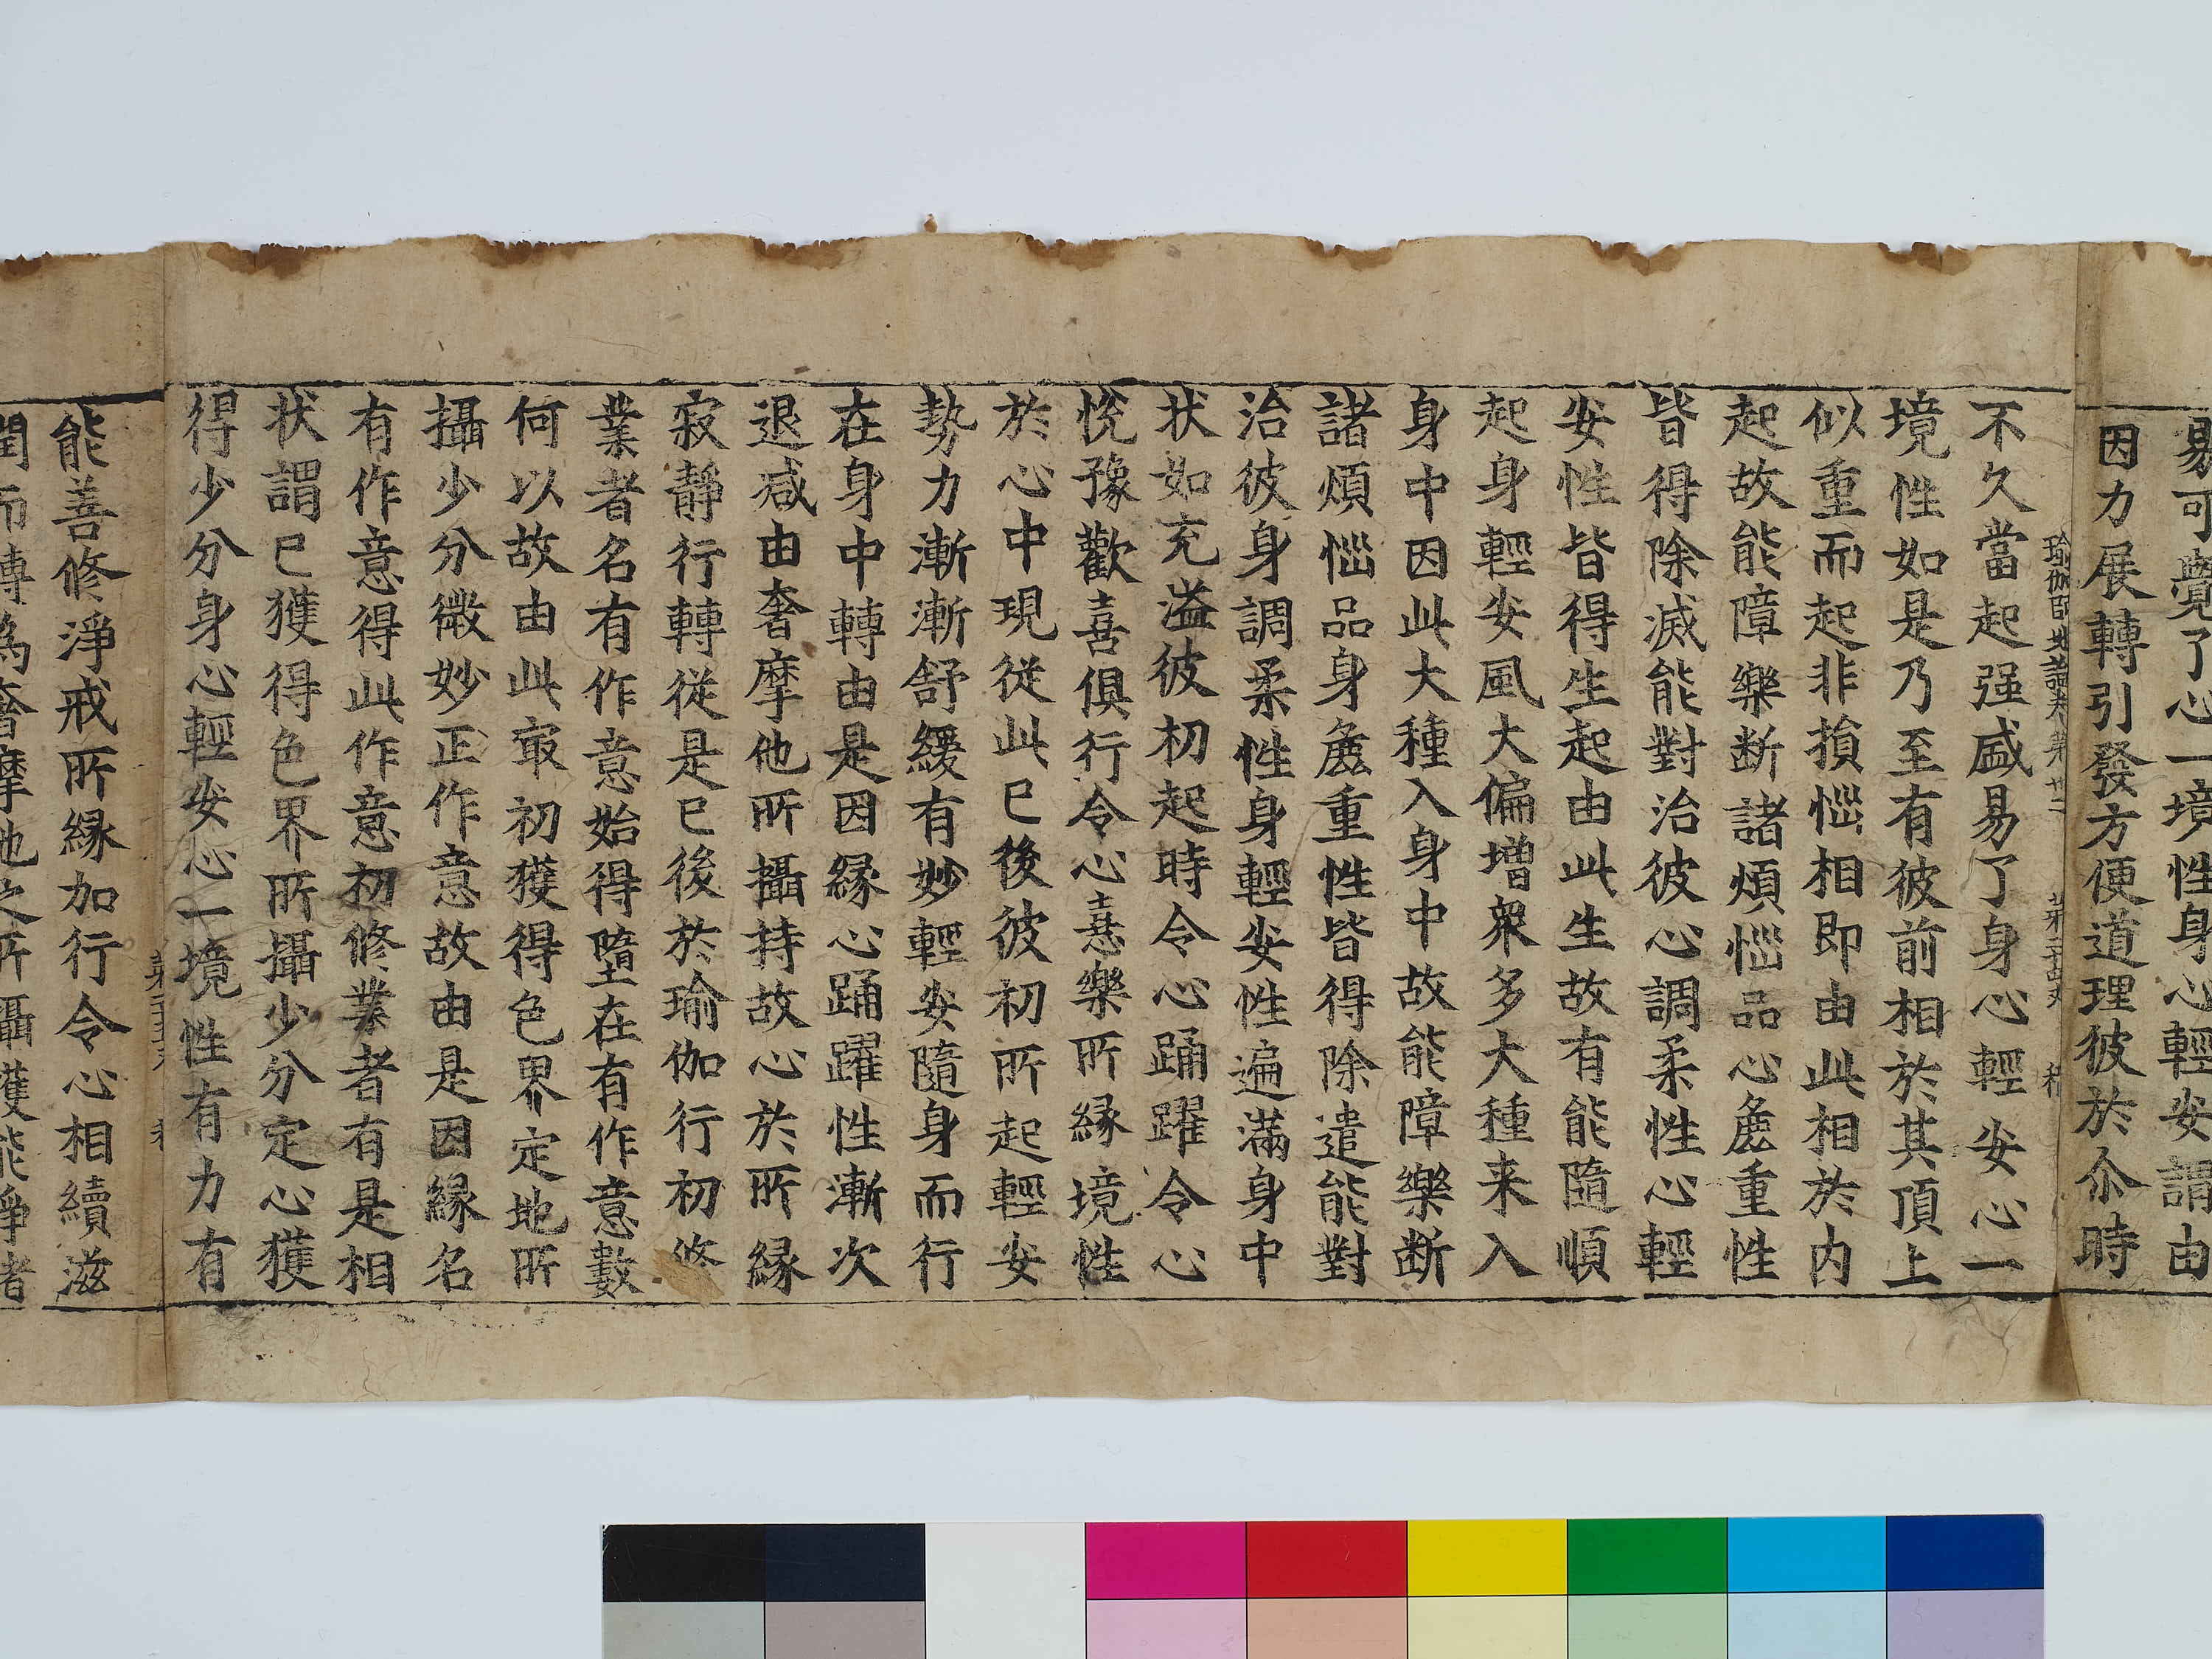 易可覺了心一境性身心輕安謂由
因力展轉引發方便道理彼於尒時
瑜伽師地論卷第卅二　第二十四丈　稱
不久當起强盛易了身心輕安心一
境性如是乃至有彼前相於其頂上
似重而起非損惱相即由此相於内
起故能障樂断諸煩惱品心麁重性
皆得除滅能對治彼心調柔性心輕
安性皆得生起由此生故有能隨順
起身輕安風大偏增衆多大種来入
身中因此大種入身中故能障樂断
諸煩惱品身麁重性皆得除遣能對
治彼身調柔性身輕安性遍滿身中
状如充溢彼初起時令心踊躍令心
悅豫歡喜俱行令心憙樂所緣境性
於心中現從此已後彼初所起輕安
勢力漸漸舒緩有妙輕安隨身而行
在身中轉由是因緣心踊躍性漸次
退減由奢摩他所攝持故心於所緣
寂静行轉從是已後於瑜伽行初修
業者名有作意始得墮在有作意數
何以故由此㝡初獲得色界定地所
攝少分微妙正作意故由是因緣名
有作意得此作意初修業者有是相
状謂已獲得色界所攝少分定心獲
得少分身心輕安心一境性有力有
第二十五丈
能善修淨戒所緣加行令心相續滋
潤而轉爲奢摩他之所攝護能淨諸